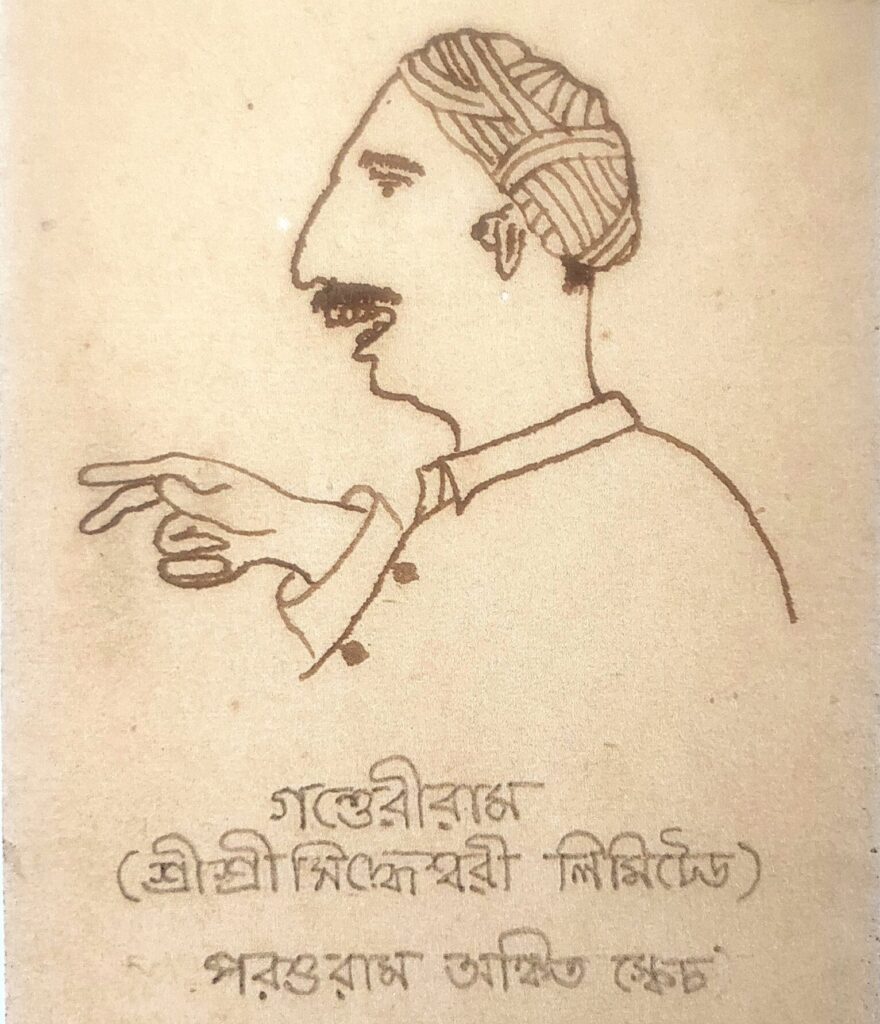 গণ্ডেরীরাম
(শ্রীশ্রীসিদ্ধেশ্বরী লিমিটেড)
পরশুরাম অঙ্কিত স্কেচ